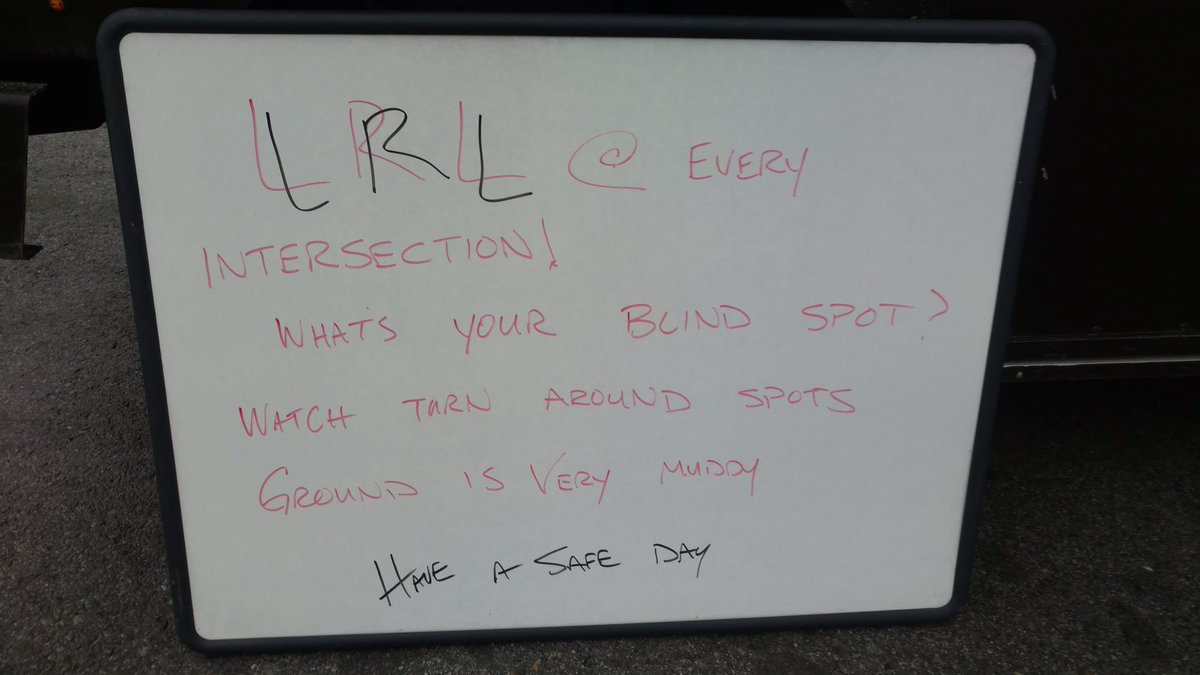 LRL @ EVERY
INTERSECTION!
WHAT'S YOUR BLIND SPOT?
WATCH TURN AROUND SPOTS
GROUND IS VERY MUDDY
HAVE A SAFE DAY